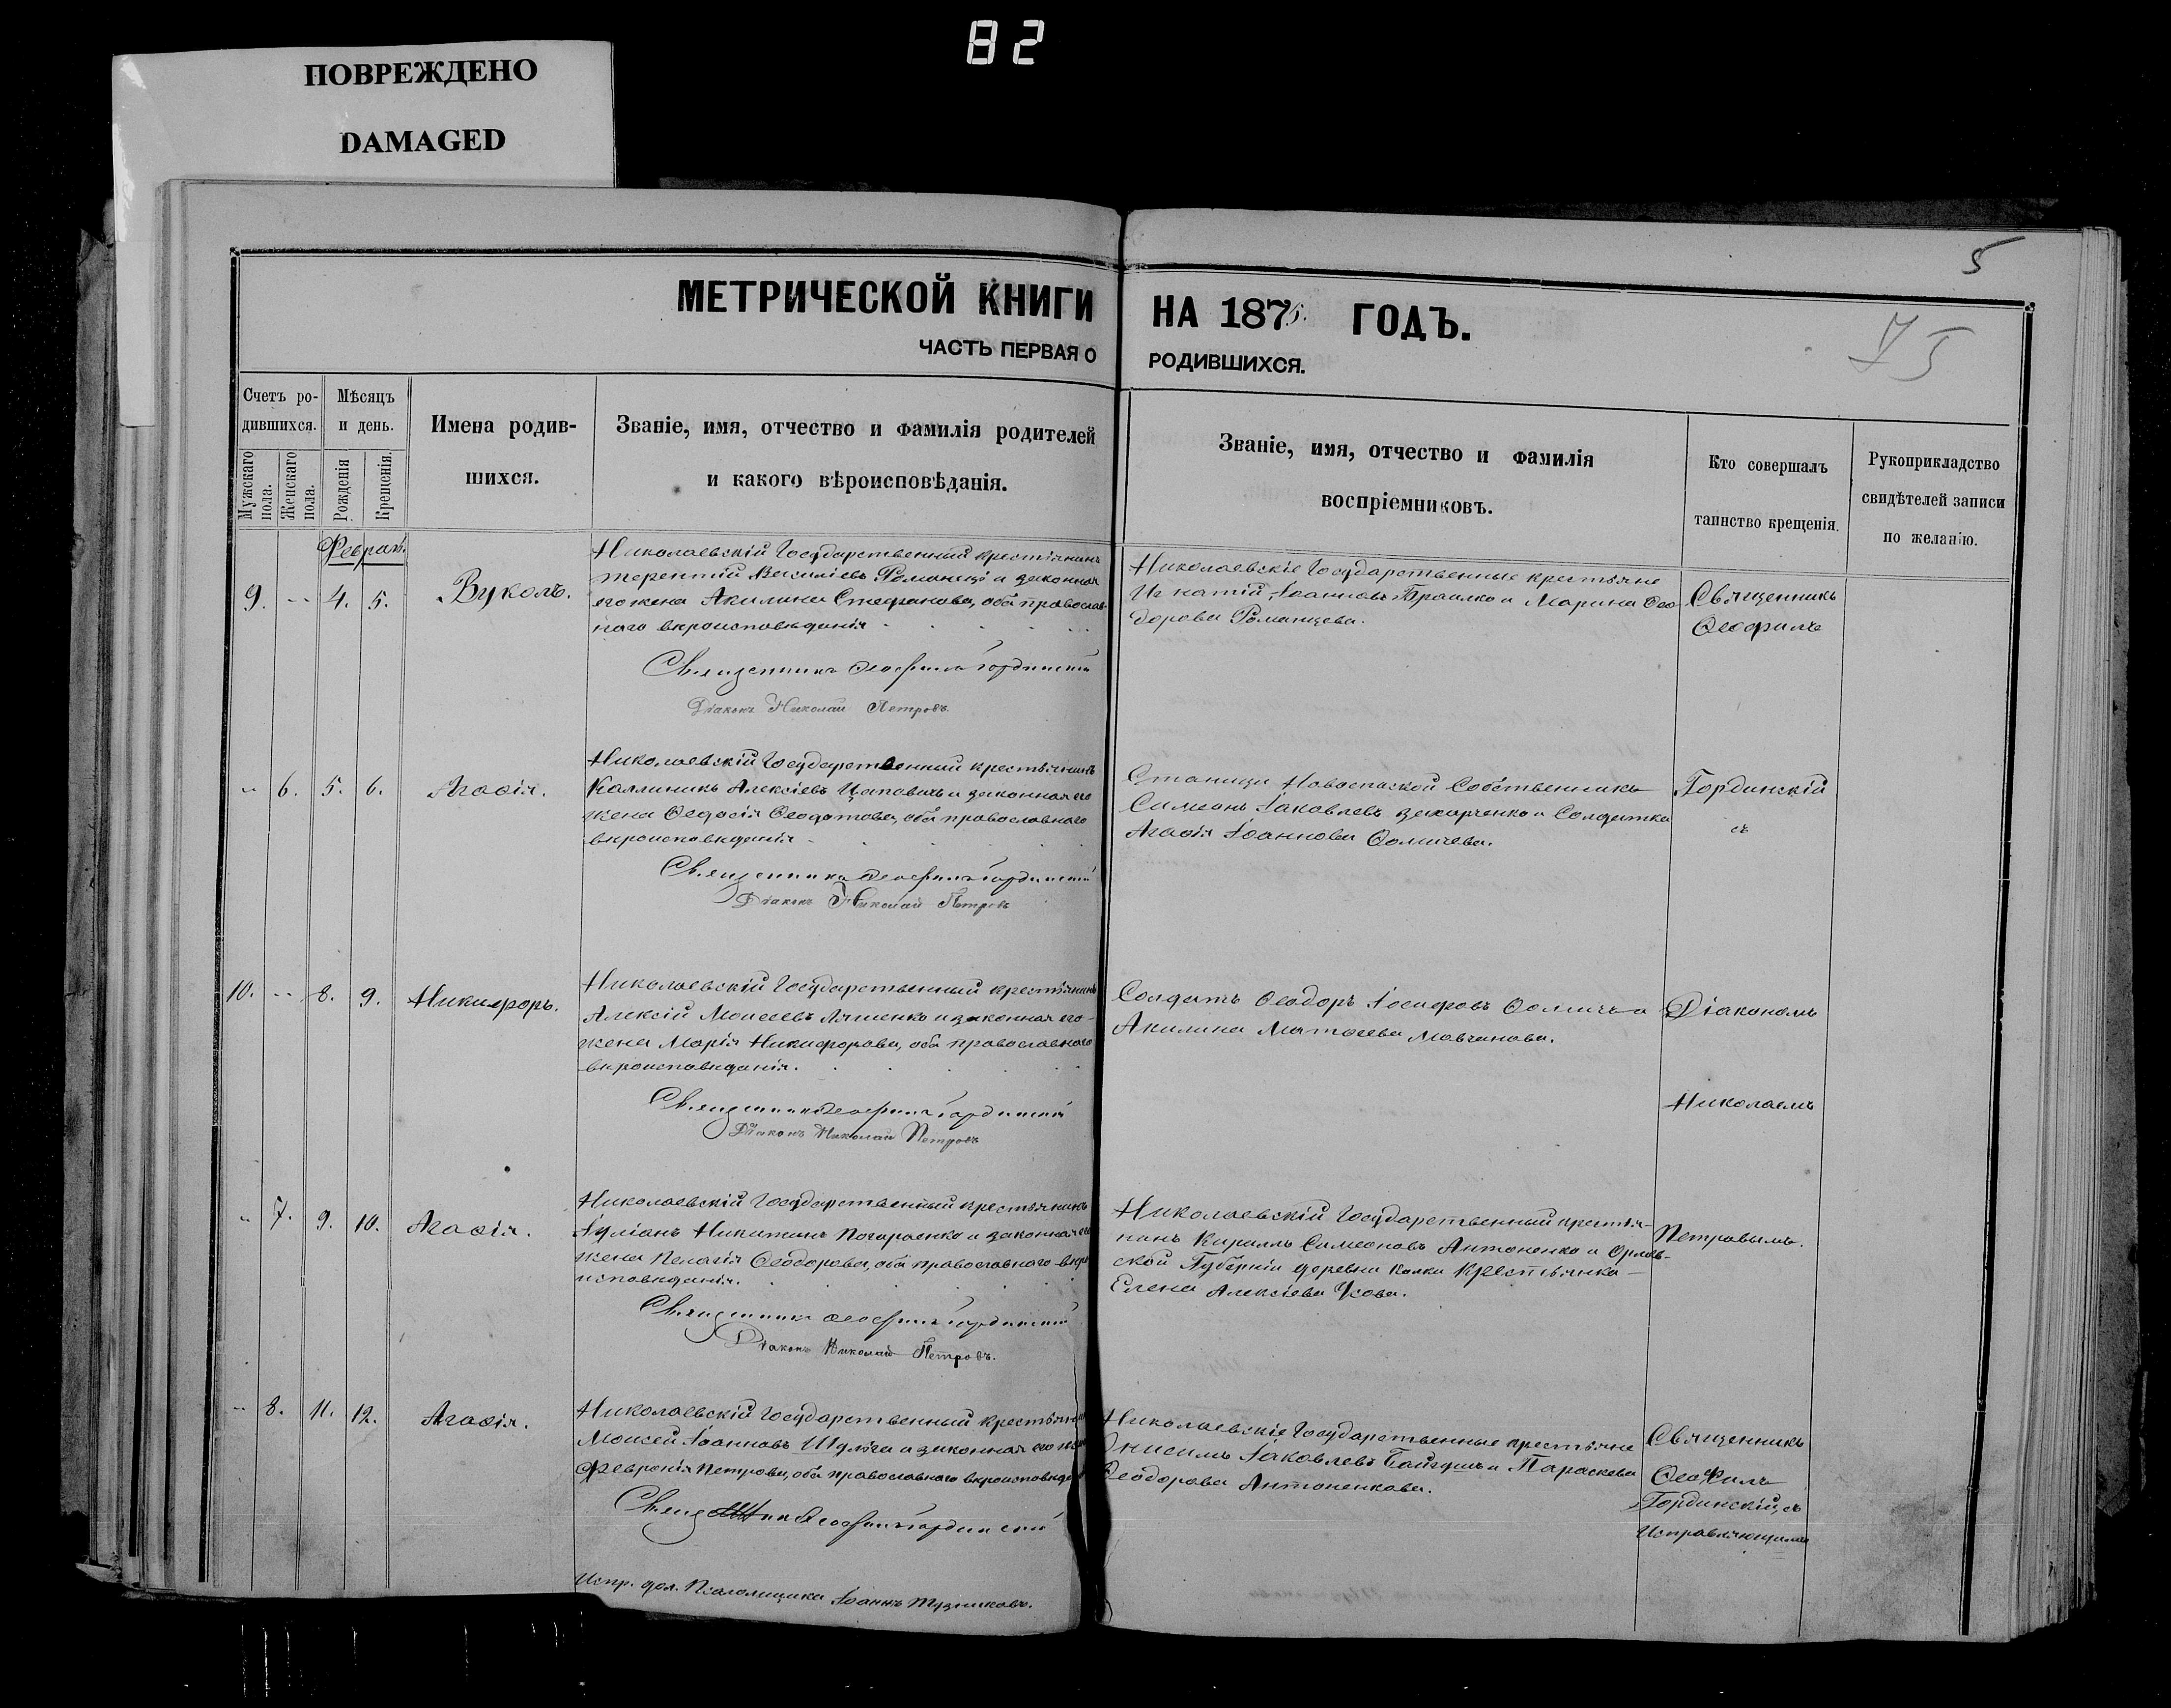 82
ПОВРЕЖДЕНО
DAMAGED
5
75
МЕТРИЧЕСКОЙ КНИГИ НА 1875. ГОДЪ.
ЧАСТЬ ПЕРВАЯ О РОДИВШИХСЯ.
Счетъ ро-
дившихся.
Мужскаго пола.
Женскаго пола.
Мѣсяцъ
и день.
Рожденія
Крещенія.
Имена родив-
шихся.
Званіе, имя, отчество и фамилія родителей
и какого вѣроисповѣданія.
Званіе, имя, отчество и фамилія
воспріемниковъ.
Кто совершалъ
таинство крещенія.
Рукоприкладство
свидѣтелей записи
по желанію.
Феврал.
9. -- 4. 5. Вуколъ.
Николаевскій Государственный крестьянинъ
Терентій Василіевъ Романецъ и законная
его жена Акилина Стефанова, оба православ-
наго вѣроисповѣданія
Священникъ Ѳеофилъ Гординскій
Діаконъ Николай Петровъ.
Николаевскіе Государственные крестьяне
Игнатій Іоанновъ Браилко и Марина Ѳео-
дорова Романцева.
Священникъ
Ѳеофилъ
-- 6. 5. 6. Агаѳія.
Николаевскій Государственный крестьянинъ
Каллиникъ Алексіевъ Цаповичъ и законная его
жена Ѳеодосія Ѳеодотова, оба православнаго
вѣроисповѣданія
Священникъ Ѳеофилъ Гординскій
Діаконъ Николай Петровъ
Станицы Новоспаской Собственникъ
Симеонъ Іаковлевъ Захарченко и Солдатка
Агаѳія Іоаннова Ѳомичева.
Гординскій
съ
10. -- 8. 9. Никифоръ.
Николаевскій Государственный крестьянинъ
Алексій Моисеевъ Ляшенко и законная его
жена Марія Никифорова, оба православнаго
вѣроисповѣданія.
Священникъ Ѳеофилъ Гординскій
Діаконъ Николай Петровъ
Солдатъ Ѳеодоръ Іосифовъ Ѳомичъ и
Акилина Матѳеева Мовчанова.
Діакономъ
Николаемъ
-- 7. 9. 10. Агаѳія.
Николаевскій Государственный крестьянинъ
Адміанъ Никитинъ Погараенко и законная его
жена Пелагія Ѳеодорова, оба православнаго вѣро
исповѣданія.
Священникъ Ѳеофилъ Гординскій
Діаконъ Николай Петровъ.
Николаевскій Государственный крестья-
нинъ Кириллъ Симеоновъ Антоненко и Орлов-
ской Губерніи деревни Колки Крестьянка
Елена Алексіева Усова.
Петровымъ.
-- 8. 11. 12. Агаѳія.
Николаевскій Государственный крестьянин
Моисей Іоанновъ Шуляга и законная его жена
Февронія Петрова, оба православнаго вѣроисповѣда
Священникъ Ѳеофилъ Гординскій
Испр. дол. Псаломщика Іоаннъ Тузниковъ.
Николаевскіе Государственные крестьяне
Онисимъ Іаковлевъ Байгушъ и Параскева
Ѳеодорова Антоненкова.
Священникъ
Ѳеофилъ
Гординскій, съ
Исправляющимъ